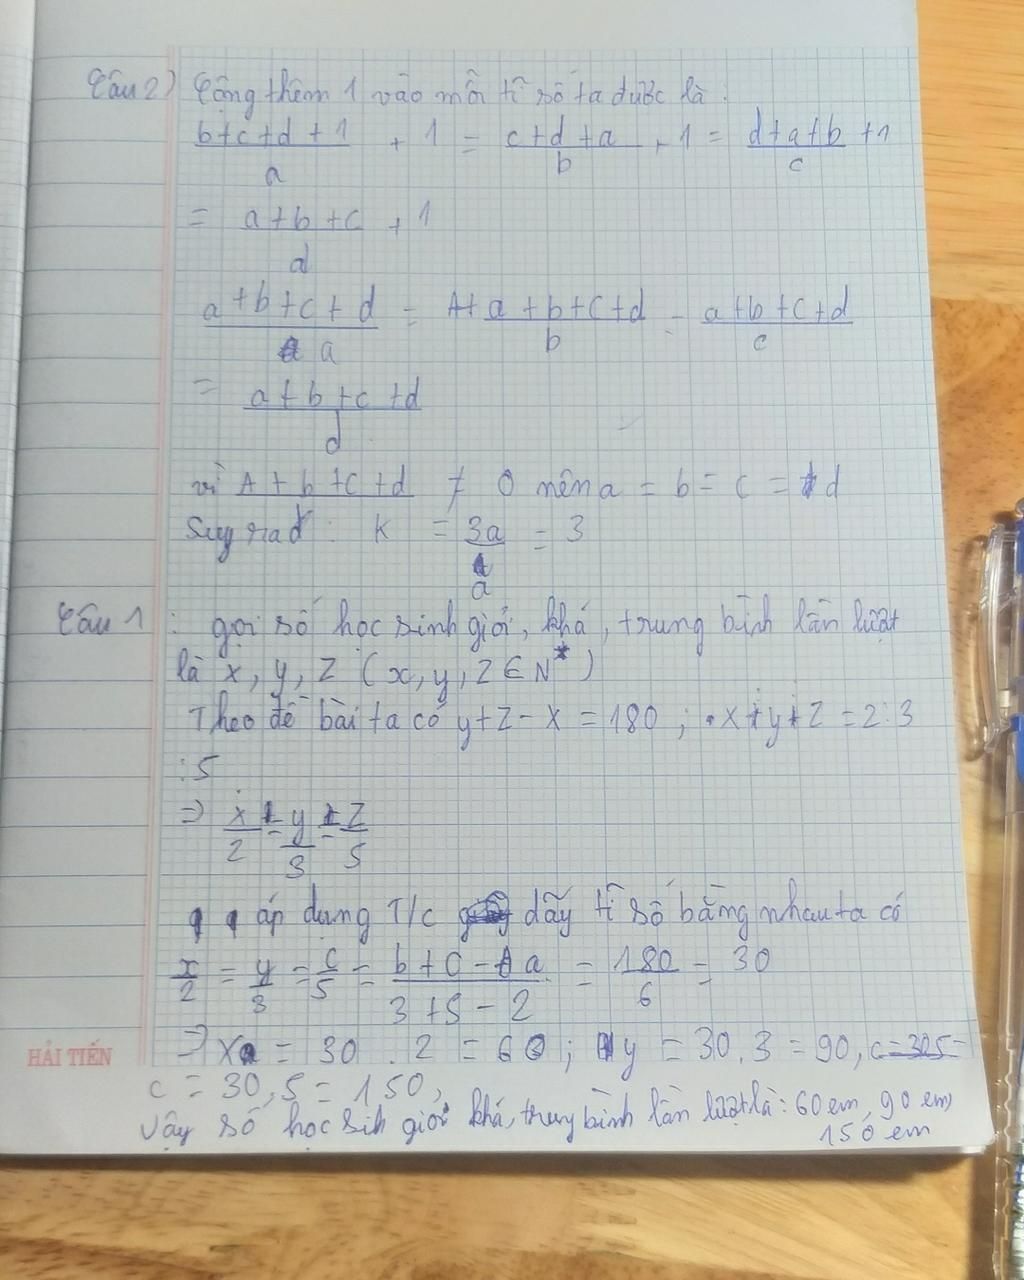 Câu 2) Cộng thêm 1 vào mỗi tỉ số ta được là :
b+c+d+1/a + 1 = c+d+a/b + 1 = d+a+b/c +1
= a+b+c/d + 1
a+b+c+d/a = A+ a+b+c+d/b = a+b+c+d/c
= a+b+c+d/d
vì A+b+c+d ≠ 0 nên a = b = c = d
Suy ra : K = 3a/a = 3
Câu 1 : gọi số học sinh giỏi, khá, trung bình lần lượt
là x, y, Z (x, y, Z ∈ N*)
Theo đề bài ta có y+Z - x = 180 ; x : y : Z = 2:3
:5
=> x/2 = y/3 = Z/5
áp dụng T/c dãy tỉ số bằng nhau ta có
x/2 = y/3 = c/5 = b+c-a/3+5-2 = 180/6 = 30
=> x = 30 . 2 = 60 ; y = 30 . 3 = 90, c=305=
c = 30,5 = 150,
Vậy số học sih giỏi khá, trung bình lần lượt là : 60 em, 90 em,
150 em
HẢI TIẾN